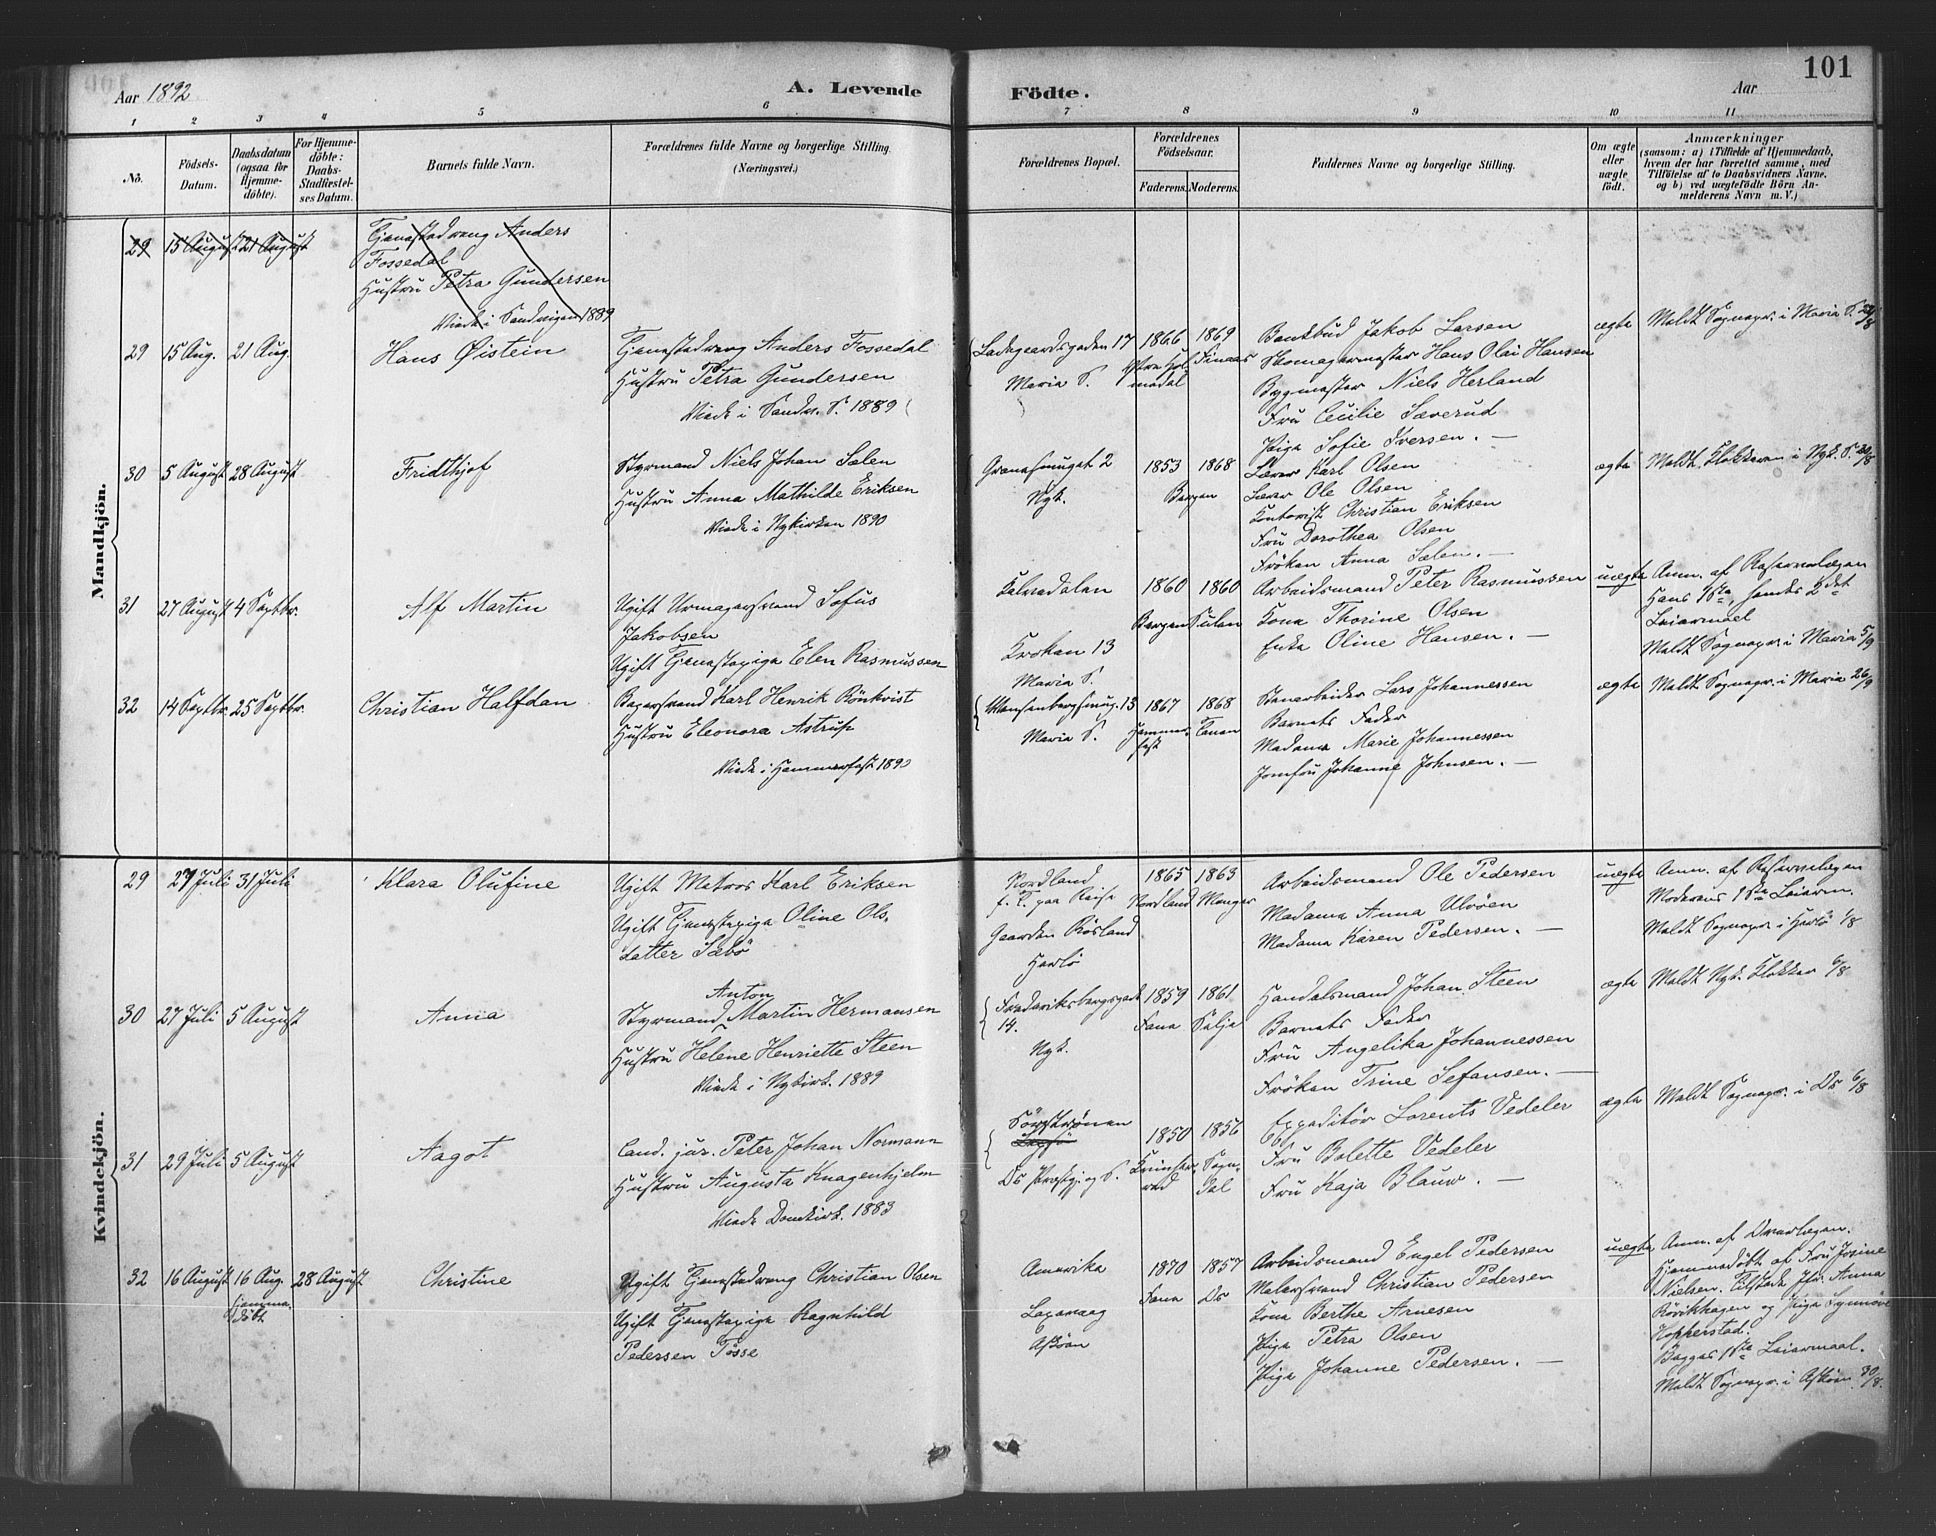 Aar 1892
A. Levende
Födte.
Aar
101
1 2 3 4 5 6 7 8 9 10 11
No.
Födsels-
Datum.
Daabsdatum
(ogsaa for
Hjemme-
döbte).
For Hjemme-
döbte:
Daabs-
Stadfæstel-
ses Datum.
Barnets fulde Navn.
Forældrenes fulde Navne og borgerlige Stilling.
(Næringsvei.)
Forældrenes Bopæl.
Forældrenes
Födselsaar.
Faderens.
Moderens.
Faddernes Navne og borgerlige Stilling.
Om ægte
eller
uægte
födt.
Anmærkninger
(saasom: a) i Tilfælde af Hjemmedaab,
hvem der har forrettet samme, med
Tilföielse af to Daabsvidners Navne.
og b) ved uægtefödte Börn An-
melderens Navn m.V.)
Mandkjön.
29 15 August 21 August
Tjenestedreng Anders
Fossedal
Hustru Petra Gundersen
Viede i Sandvigen 1889
29 15 Aug. 21 Aug.
Hans Øistein
Tjenestedreng Anders Fossedal
Hustru Petra Gundersen
Viede i Sandv. S. 1889
Ladegaardsgaden 17
Maria S.
1866
1869
Finaas
Bankbud Jakob Larsen
Skomagermester Hans Olai Hansen
Bygmester Niels Herland
Fru Cecilie Sæverud
Pige Sofie Iversen. —
ægte
Meldt Sognepr. i Maria S.
30 5 August 28 August
Fridthjof
Styrmand Niels Johan Sælen
Hustru Anna Mathilde Eriksen
Viede i Nykirken 1890
Grønesmuget 2
Nyk.
1853 1868
Bergen
Lærer Karl Olsen
Lærer Ole Olsen
Kontorist Christian Eriksen
Fru Dorothea Olsen
Fröken Anna Sælen. —
ægte
Meldt Klokkeren i Nyk. S. 30/8
31 27 August 4 Septbr.
Alf Martin
Ugift Urmagersvend Sofus
Jakobsen
Ugift Tjenestepige Elen Rasmussen
Kalvedalen
Krohen 13
Maria S.
1860 1860
Bergen Sulen
Arbeidsmand Peter Rasmussen
Kone Thorine Olsen
Enke Oline Hansen. —
uægte
Anm. af Reservelægen
Hans 1ste, hendes 2det
Leiermaal
Meldt Sognepr. i Maria 5/9
32 14 Septbr. 25 Septbr.
Christian Halfdan
Bagersvend Karl Henrik Rönkvist
Hustru Eleonora Astrup
Viede i Hammerfest 1890
13
Maria S.
1867 1868
Hammer-
fest
Tanen
Stenarbeider Lars Johannessen
Barnets Fader
Madame Marie Johannessen
Jomfru Johanne Johnsen. —
ægte
Meldt Sognepr. i Maria 26/9
Kvindekjön.
29 27 Juli 31 Juli
Klara Olufine
Ugift Matros Karl Eriksen
Ugift Tjenestepige Oline Ols.
datter Sæbö
Nordland
f. T. paa Reise
Gaarden Rösland
Herlö
1865 1863
Nordland Manger
Arbeidsmand Ole Pedersen
Madame Anna Ulvöen
Madame Karen Pedersen. —
uægte
Anm. af Reservelægen
Moderens 1ste Leierm.
Meldt Sognepr. i Herlö 1/8
30 27 Juli 5 August
Anna
Anton
Styrmand Martin Hermansen
Hustru Helene Henriette Steen
Viede i Nykirk. 1889
Frederiksbergsgade
14.
Nyk.
1859 1861
Fana Silje
Handelsmand Johan Steen
Barnets Fader
Fru Angelika Johannessen
Fröken Trine Sefansen. —
ægte
Meldt Nyk. Klokker 6/8
31 29 Juli 5 August
Aagot
Cand. jur. Peter Johan Normann
Hustru Augusta Knagenhjelm
Viede Domkirk. 1883
Ds Præstgj og S.
1850 1856
Sogn-
dal
Expeditör Lorents Vedeler
Fru Bolette Vedeler
Fru Kaja Blauw. —
ægte
Meldt Sognepr. i Ds 6/8
32 16 August 16 Aug.
Hjemme-
döbt
28 August
Christine
Ugift Tjenestedreng Christian Olsen
Ugift Tjenestepige Ragnhild
Pedersen Tösse
Amerika
Laxevaag
Asköen
1870 1857
Fana Ds
Arbeidsmand Engel Pedersen
Malersvend Christian Pedersen
Kone Berthe Arnesen
Pige Petra Olsen
Pige Johanne Pedersen. —
uægte
Anm. af Overlægen.
Hjemmedöbt af Fru Josine
Nielsen. Tilstede Jfr. Anna
Rövikhagen og Pige Synnöve
Hopperstad.
Begges 1ste Leiermaal.
Meldt Sognepr. i Asköen 30/8.